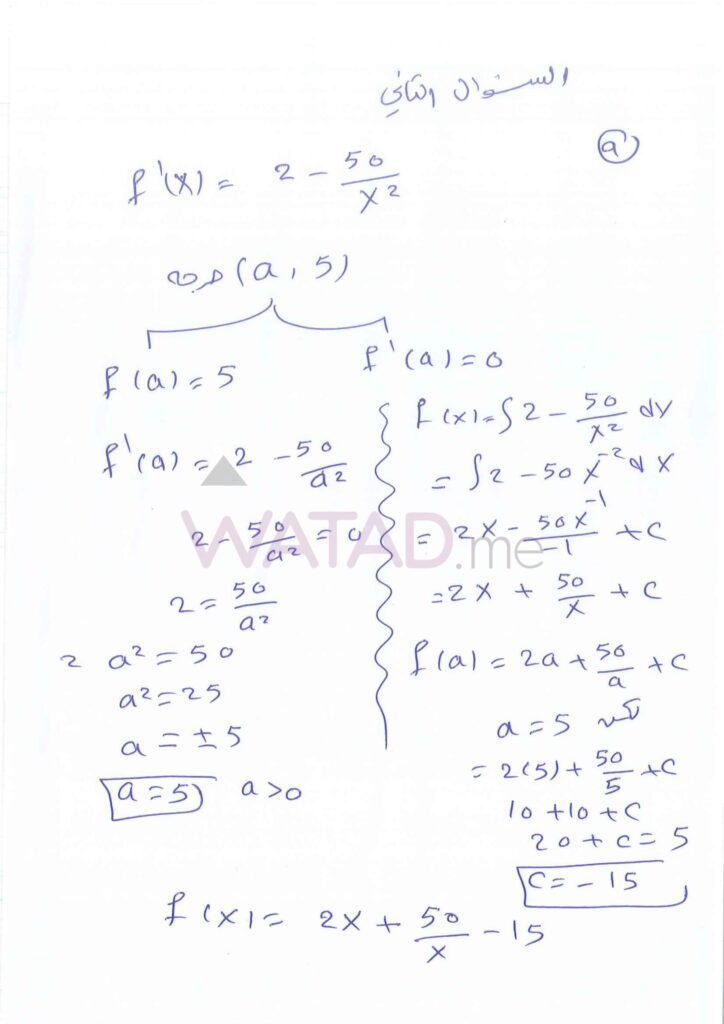 السؤال الثاني
(a)
f'(x) = 2 - 50/x²
(a, 5)
f(a) = 5
f'(a) = 0
f'(a) = 2 - 50/a²
2 - 50/a² = 0
2 = 50/a²
2 a² = 50
a² = 25
a = ± 5
a = 5 a > 0
f(x) = ∫ 2 - 50/x² dx
= ∫ 2 - 50 x⁻² dx
= 2x - 50x⁻¹/-1 + c
= 2x + 50/x + c
f(a) = 2a + 50/a + c
a = 5 لكن
= 2(5) + 50/5 + c
10 + 10 + c
20 + c = 5
c = - 15
f(x) = 2x + 50/x - 15
WATAD.me